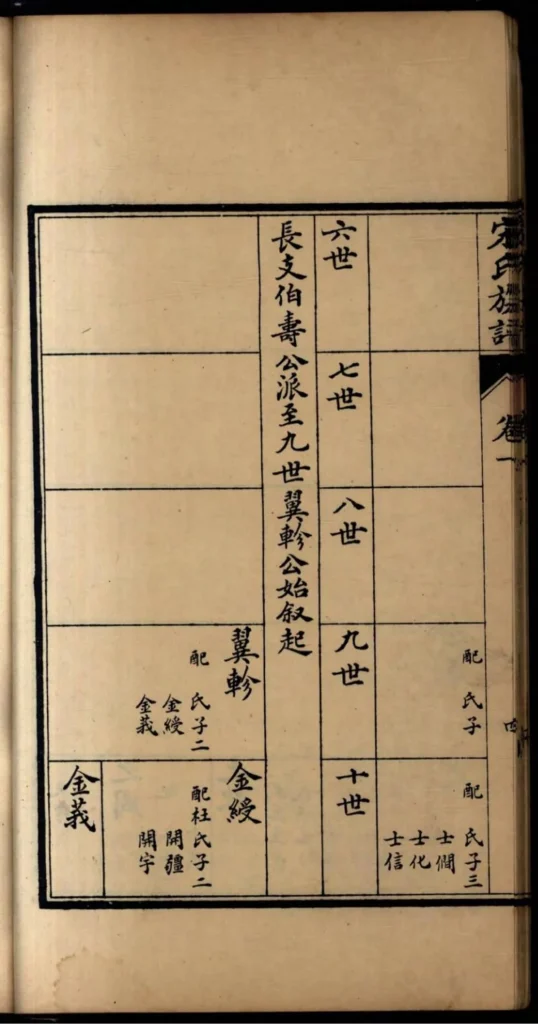 宋氏族譜
卷一
四
配 氏子
配 氏子三
士僩
士化
士信
六世
七世
八世
九世
十世
長支伯壽公派至九世翼軫公始叙起
翼軫
配 氏子二
金綬
金義
金綬
配杜氏子二
開疆
開宇
金義